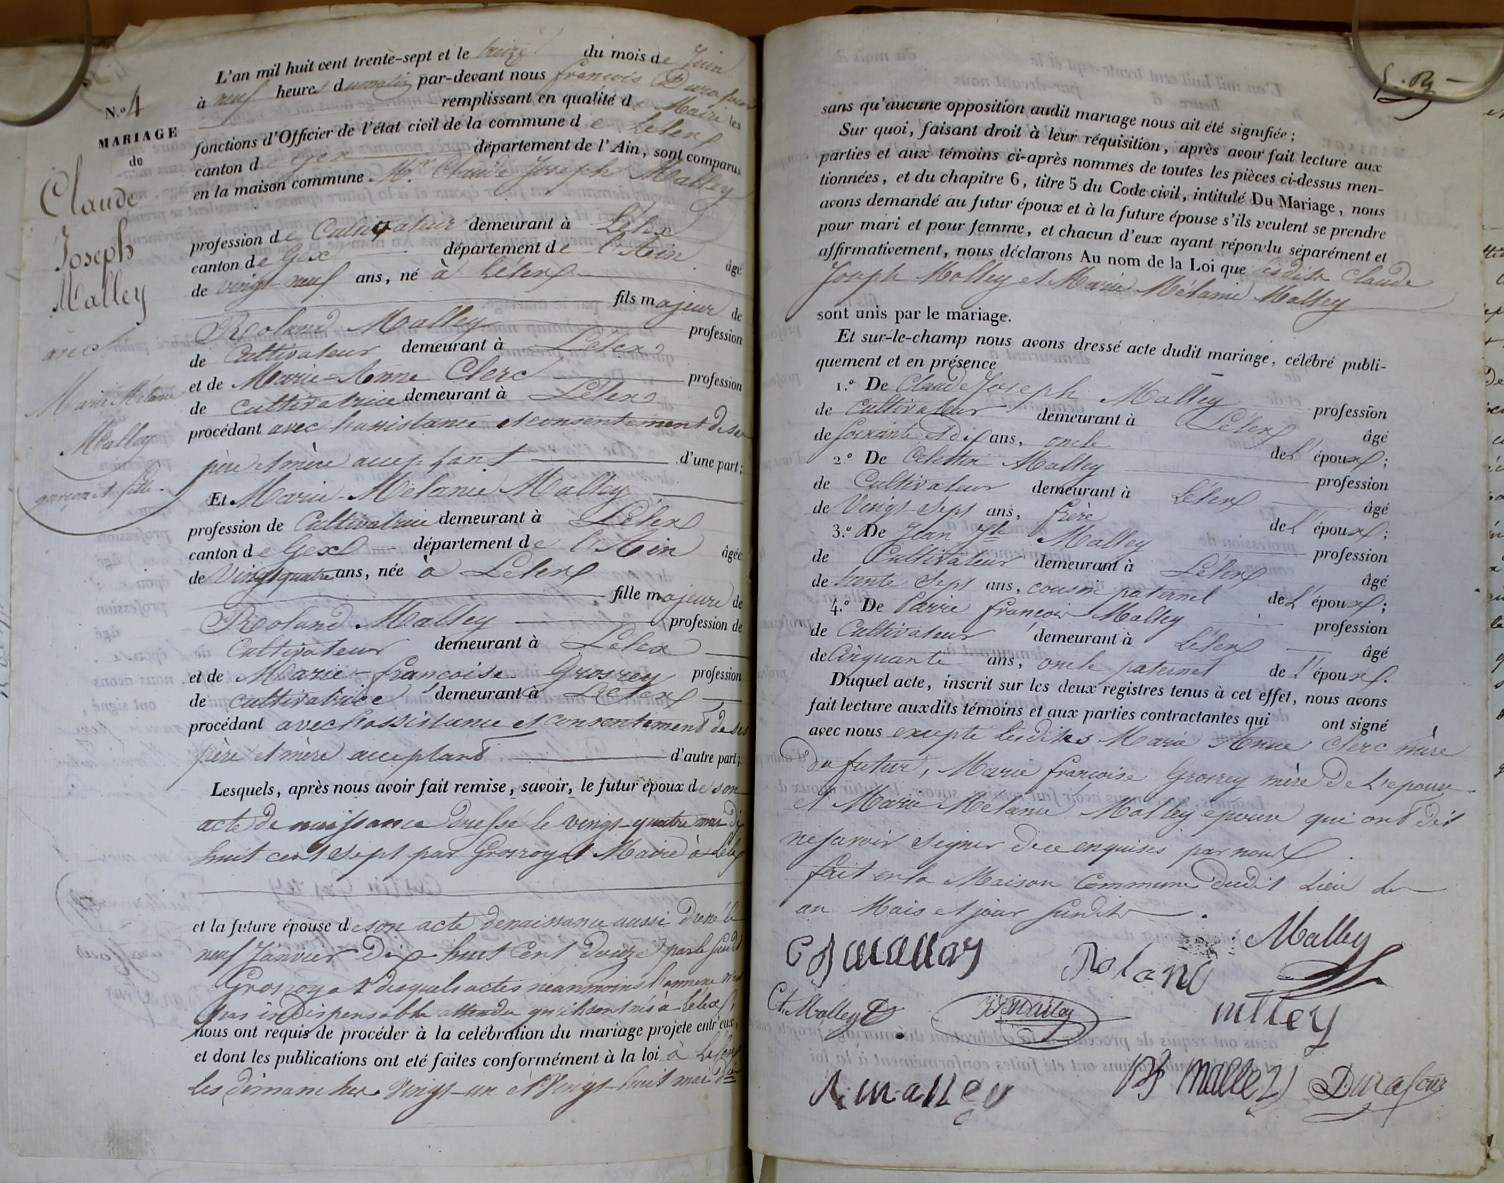 N.º 4
MARIAGE
de
Claude
Joseph
Malley
avec
Marie Mélanie
Malley
garçon et fille.
L'an mil huit cent trente-sept et le treize du mois de Juin
à neuf heures du matin par-devant nous françois Durafour
remplissant en qualité de Maire les
fonctions d'Officier de l'état civil de la commune de Lélex
canton de Gex département de l'Ain, sont comparus
en la maison commune Mr. Claude Joseph Malley
profession de Cultivateur demeurant à Lélex
canton de Gex département de l'Ain âgé
de vingt neuf ans, né à Lélex
fils majeur de
Roland Malley profession
de Cultivateur demeurant à Lélex
et de Marie-Anne Clerc profession
de cultivatrice demeurant à Lélex
procédant avec l'assistance et consentement de ses
père et mère acceptant d'une part;
Et Marie Mélanie Malley
profession de Cultivatrice demeurant à Lélex
canton de Gex département de l'Ain âgée
de Vingt quatre ans, née à Lélex
fille majeure de
Roland Malley profession de
Cultivateur demeurant à Lélex
et de Marie-françoise Grosrey profession
de cultivatrice demeurant à Lélex
procédant avec l'assistance et consentement de ses
père et mère acceptant d'autre part;
Lesquels, après nous avoir fait remise, savoir, le futur époux de son
acte de naissance dressé le vingt-quatre mai dix
huit cent sept par Grosrey Maire à Lélex
et la future épouse de son acte de naissance aussi dressé le
neuf Janvier Dix-huit cent douze par le susdit
Grosrey desquels actes néanmoins l'annexe n'est
pas indispensable attendu qu'ils sont nés à Lélex
nous ont requis de procéder à la célébration du mariage projeté entr'eux,
et dont les publications ont été faites conformément à la loi à Lélex
les dimanches Vingt-un et Vingt-huit mai
sans qu'aucune opposition audit mariage nous ait été signifiée;
Sur quoi, faisant droit à leur réquisition, après avoir fait lecture aux
parties et aux témoins ci-après nommés de toutes les pièces ci-dessus men-
tionnées, et du chapitre 6, titre 5 du Code civil, intitulé Du Mariage, nous
avons demandé au futur époux et à la future épouse s'ils veulent se prendre
pour mari et pour femme, et chacun d'eux ayant répondu séparément et
affirmativement, nous déclarons Au nom de la Loi que lesdits Claude
Joseph Malley et Marie Mélanie Malley
sont unis par le mariage.
Et sur-le-champ nous avons dressé acte dudit mariage, célébré publi-
quement et en présence
1.º De Claude Joseph Malley profession
de Cultivateur demeurant à Lélex âgé
de soixante et dix ans, oncle de l'époux;
2.º De Celestin Malley profession
de Cultivateur demeurant à Lélex âgé
de Vingt sept ans, frère de l'époux;
3.º De Jean Malley profession
de Cultivateur demeurant à Lélex âgé
de trente sept ans, cousin paternel de l'époux;
4.º De Pierre françois Malley profession
de Cultivateur demeurant à Lélex âgé
de Cinquante ans, oncle paternel de l'époux.
Duquel acte, inscrit sur les deux registres tenus à cet effet, nous avons
fait lecture auxdits témoins et aux parties contractantes qui ont signé
avec nous excepté lesdites Marie Anne Clerc mère
du futur, Marie françoise Grosrey mère de l'épouse
et Marie Mélanie Malley épouse qui ont dit
ne savoir signer de ce enquises par nous
fait en la Maison Commune dudit Lélex les
an Mois et jour susdits.
C J Malley Roland Malley
Ct. Malley Malley
Malley Malley Durafour